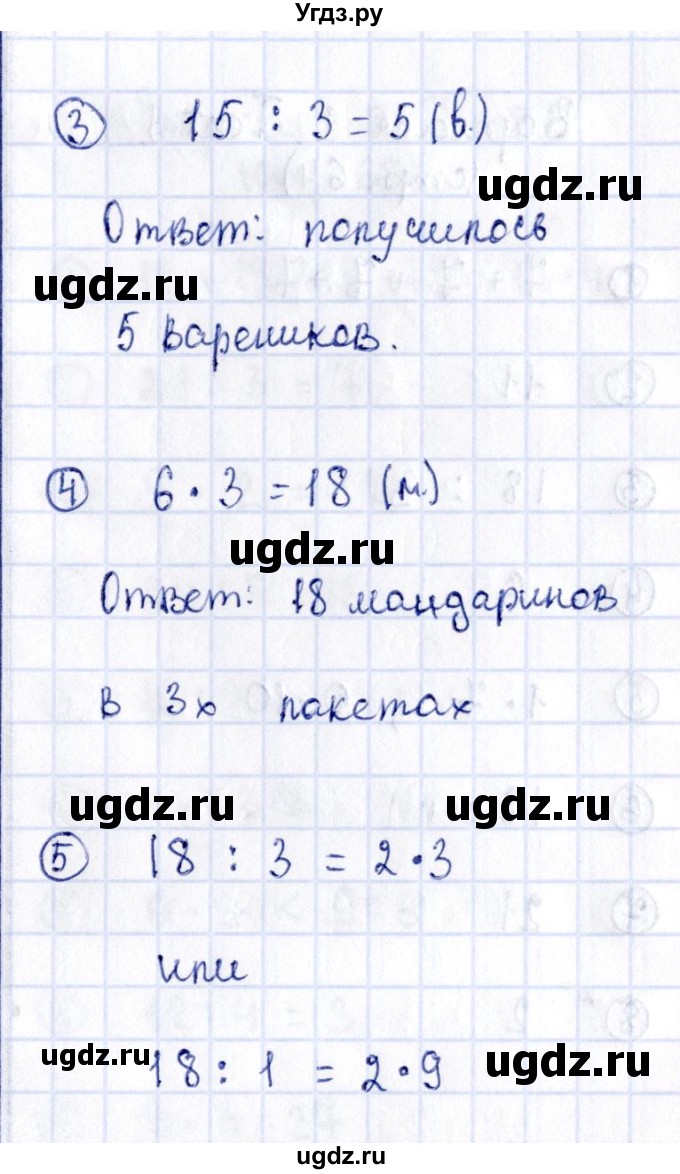 Угдз.ру
③ 15 : 3 = 5 (в.)
ugdz.ru
Ответ: получилось
ugdz.ru
5 вареников.
④ 6 · 3 = 18 (м.)
ugdz.ru
Ответ: 18 мандаринов
в 3х пакетах
ugdz.ru ugdz.ru
⑤ 18 : 3 = 2 · 3
или
ugdz.ru ugdz.ru
18 : 1 = 2 · 9
ugdz.ru